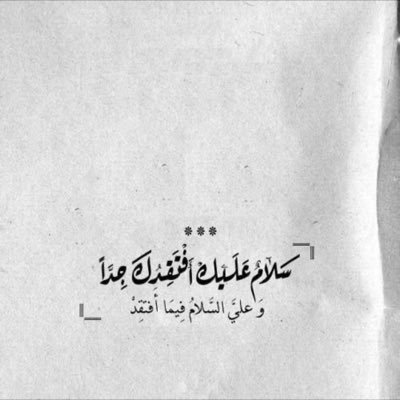 ***
سَلامٌ عَلَيْكَ أَفْتَقِدُكَ جِدَّاً
وَ عليَّ السَّلامُ فِيمَا أفتَقِدْ